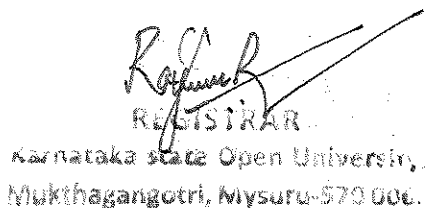 REGISTRAR
Karnataka State Open University,
Mukthagangotri, Mysuru-570 006.